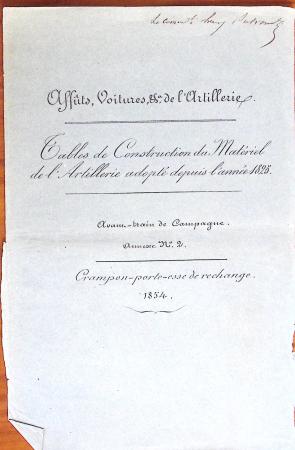 Affûts, Voitures, &a. de l'Artillerie.
Tables de Construction du Matériel
de l'Artillerie adopté depuis l'année 1825.
Avant-train de Campagne.
Annexe N.º 2.
Crampon-porte-esse de rechange.
1854.